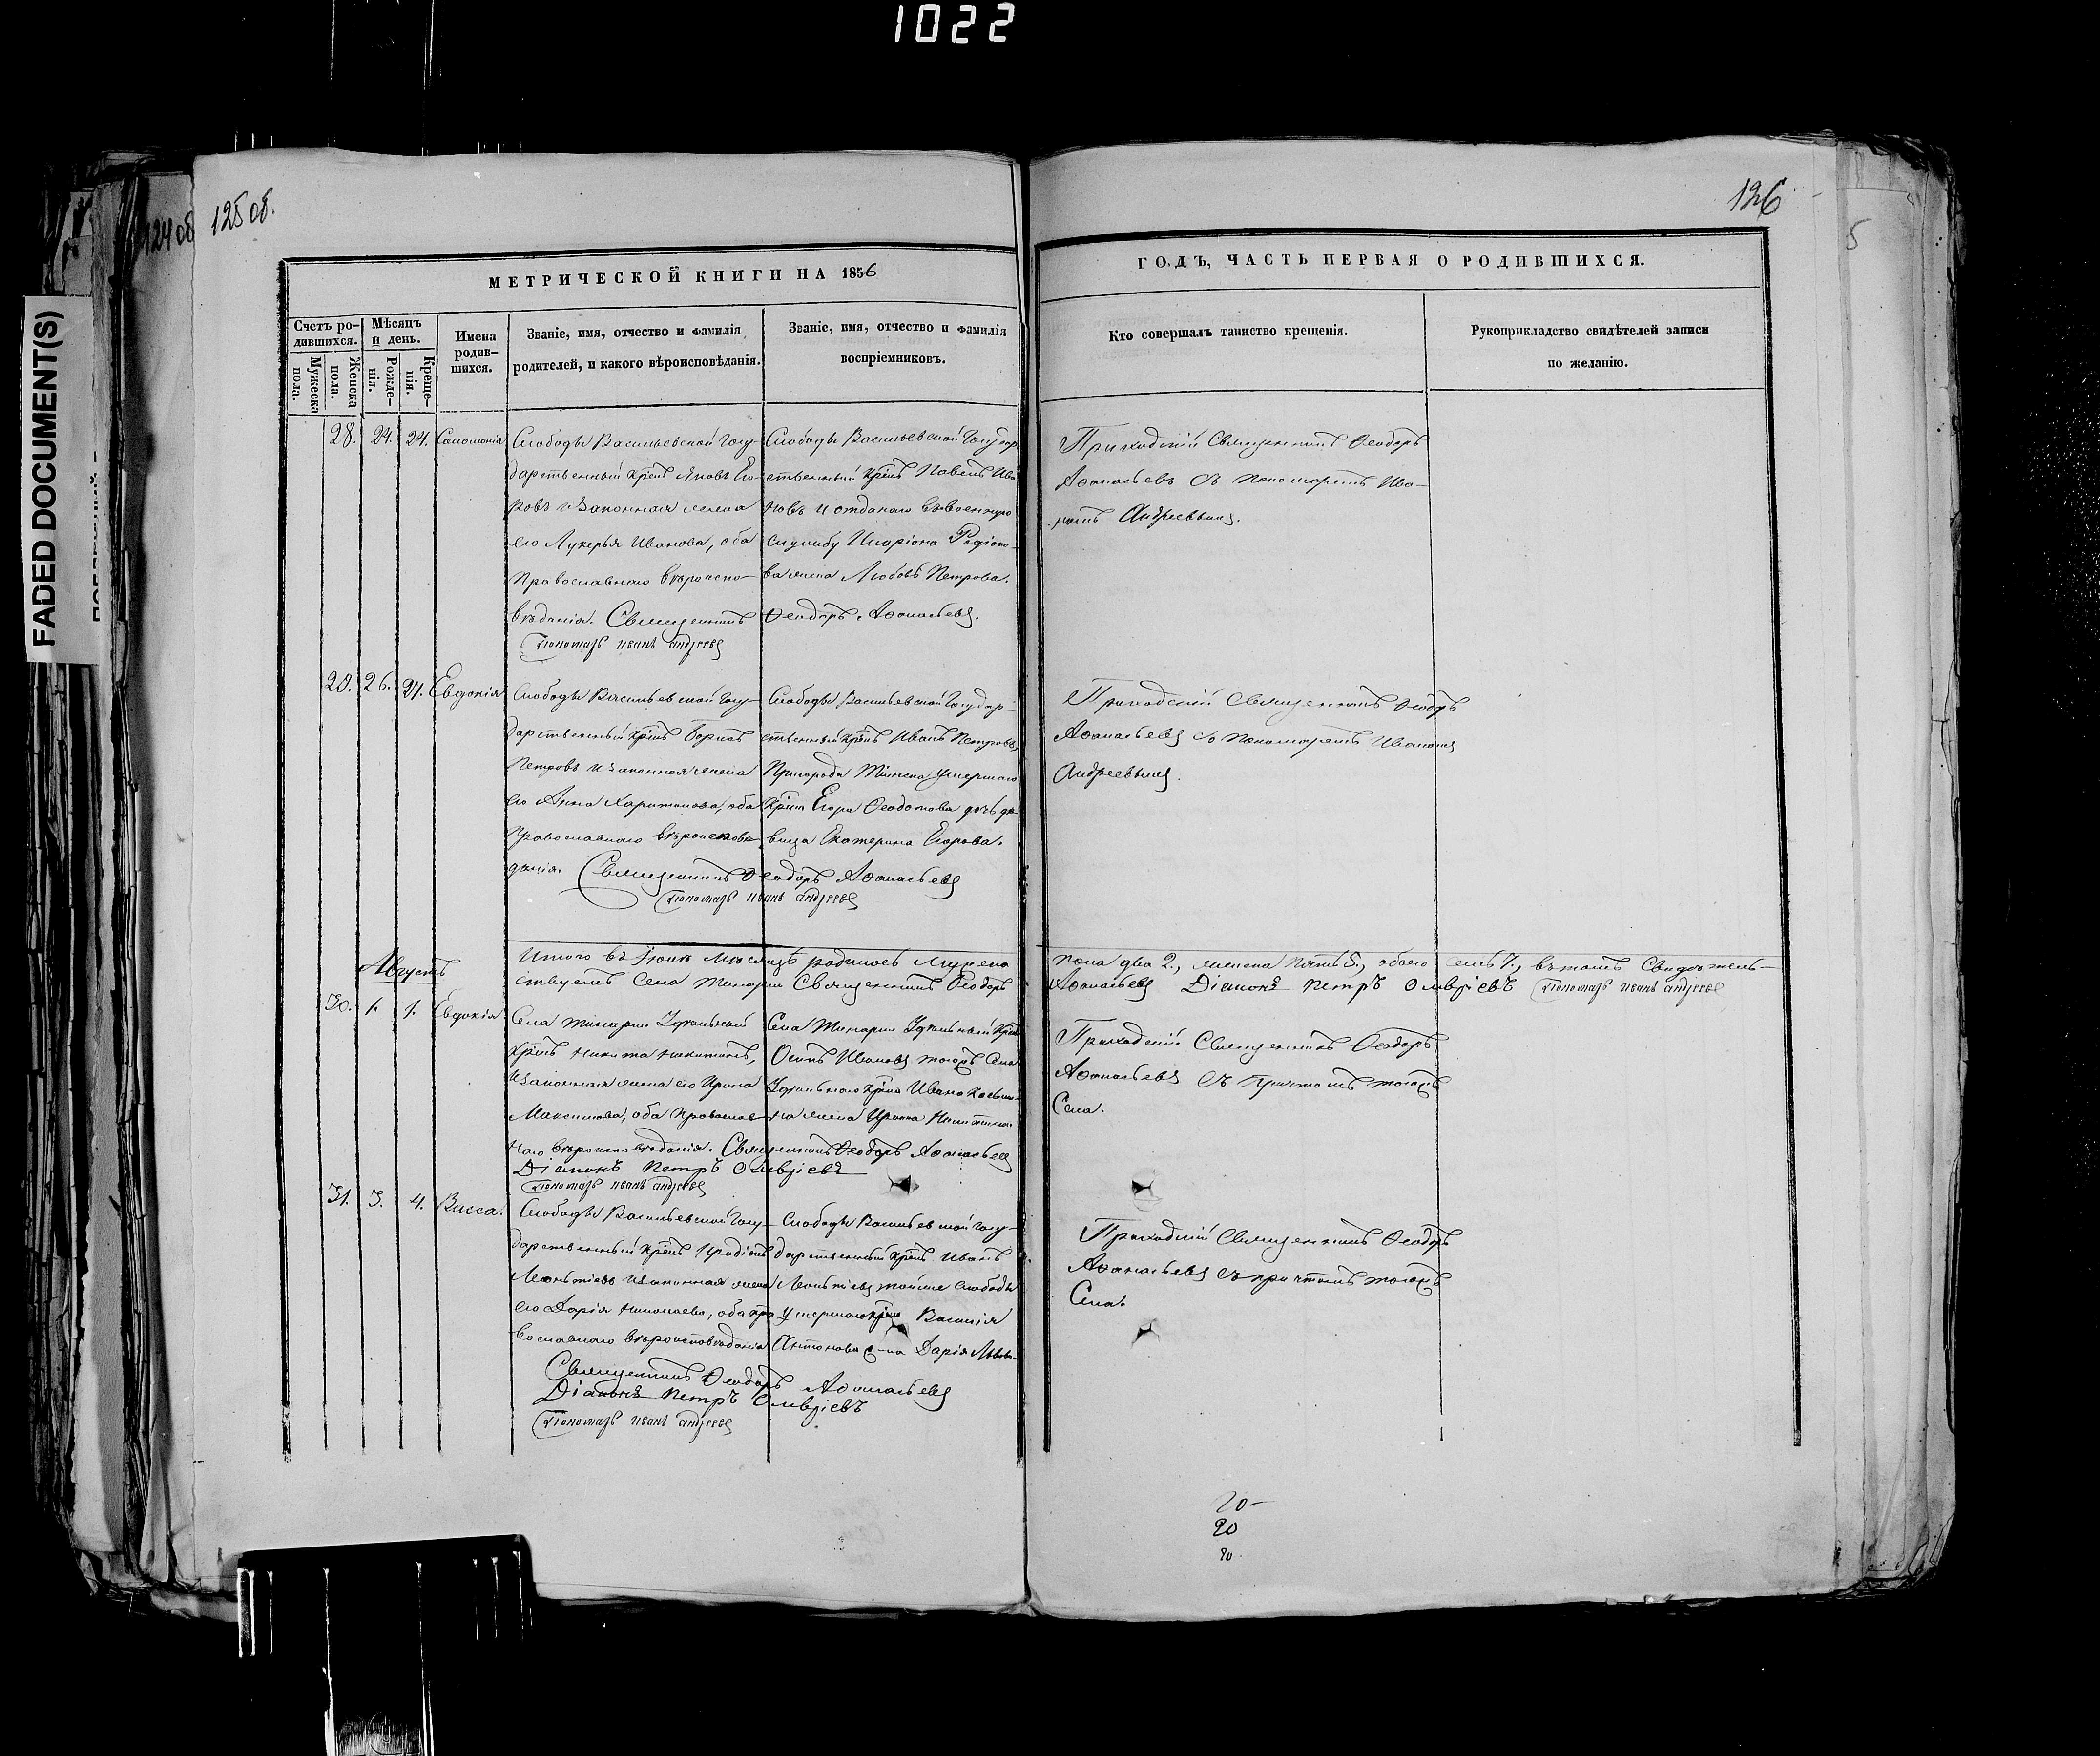 1022
FADED DOCUMENT(S)
124 об
125 об.
126
5
МЕТРИЧЕСКОЙ КНИГИ НА 1856
ГОДЪ, ЧАСТЬ ПЕРВАЯ О РОДИВШИХСЯ.
Счетъ ро-
дившихся.
Мужеска
пола.
Женска
пола.
Мѣсяцъ
и день.
Рожде-
нія.
Креще-
нія.
Имена
родив-
шихся.
Званіе, имя, отчество и фамилія
родителей, и какого вѣроисповѣданія.
Званіе, имя, отчество и фамилія
воспріемниковъ.
Кто совершалъ таинство крещенія.
Рукоприкладство свидѣтелей записи
по желанію.
28. 24. 24. Соломонія
Слободы Васильевской Госу-
дарственный крѣст Яковъ Его-
ровъ и законная жена
его Лукерья Иванова, оба
Православнаго вѣроиспо-
вѣданія. Священникъ Ѳеодоръ Аѳанасьевъ.
Пономарь Иванъ Андреевъ
Слободы Васильевской Государ-
ственный крѣст Павелъ Ива
новъ и отданаго въ военную
службу Иларіона Родіоно-
ва жена Любовь Петрова.
Приходскій Священникъ Ѳеодоръ
Аѳанасьевъ съ пономаремъ Ива-
номъ Андреевымъ.
29. 26. 27. Евдокія
Слободы Васильевской Госу-
дарственный крѣст Борисъ
Петровъ и законная жена
его Анна Харитонова, оба
Православнаго вѣроисповѣ-
данія. Священникъ Ѳеодоръ Аѳанасьевъ
Пономарь Иванъ Андреевъ
Слободы Васильевской Государ-
ственный крѣст Иванъ Петровъ,
Пригорода умершаго
крѣст Егора дочь дѣ-
вица Екатерина Егорова.
Приходскій Священникъ Ѳеодоръ
Аѳанасьевъ съ Пономаремъ Иваномъ
Андреевымъ.
Итого въ Іюлѣ Мѣсяцѣ родилось Мужеска пола два 2., женска пять 5., обоего семь 7., въ томъ Свидѣтель-
ствуемъ Села Священникъ Ѳеодоръ Аѳанасьевъ Діаконъ Петръ Пономарь Иванъ Андреевъ
Августъ
30. 1. 1. Евдокія
Села Удѣльный
крѣст Никита Никитинъ,
и законная жена его Ирина
Максимова, оба Православ-
наго вѣроисповѣданія. Священникъ Ѳеодоръ Аѳанасьевъ
Діаконъ Петръ
Пономарь Иванъ Андреевъ
Села Удѣльный крѣст
Осипъ Ивановъ тогожъ Села
Удѣльнаго крѣст Ивана
жена Ирина Никитина
Приходскій Священникъ Ѳеодоръ
Аѳанасьевъ съ причтомъ тогожъ
Села.
31. 3. 4. Васса.
Слободы Васильевской Госу-
дарственный крѣст Иродіонъ
Леонтіевъ и законная жена
его Дарія Николаева, оба пра
вославнаго вѣроисповѣданія
Священникъ Ѳеодоръ Аѳанасьевъ
Діаконъ Петръ
Пономарь Иванъ Андреевъ
Слободы Васильевской Госу-
дарственный крѣст Иванъ
Леонтіевъ тойже Слободы
умершаго крѣст Василія
Антонова жена Дарія
Приходскій Священникъ Ѳеодоръ
Аѳанасьевъ съ причтомъ тогожъ
Села.
20-
20
20.